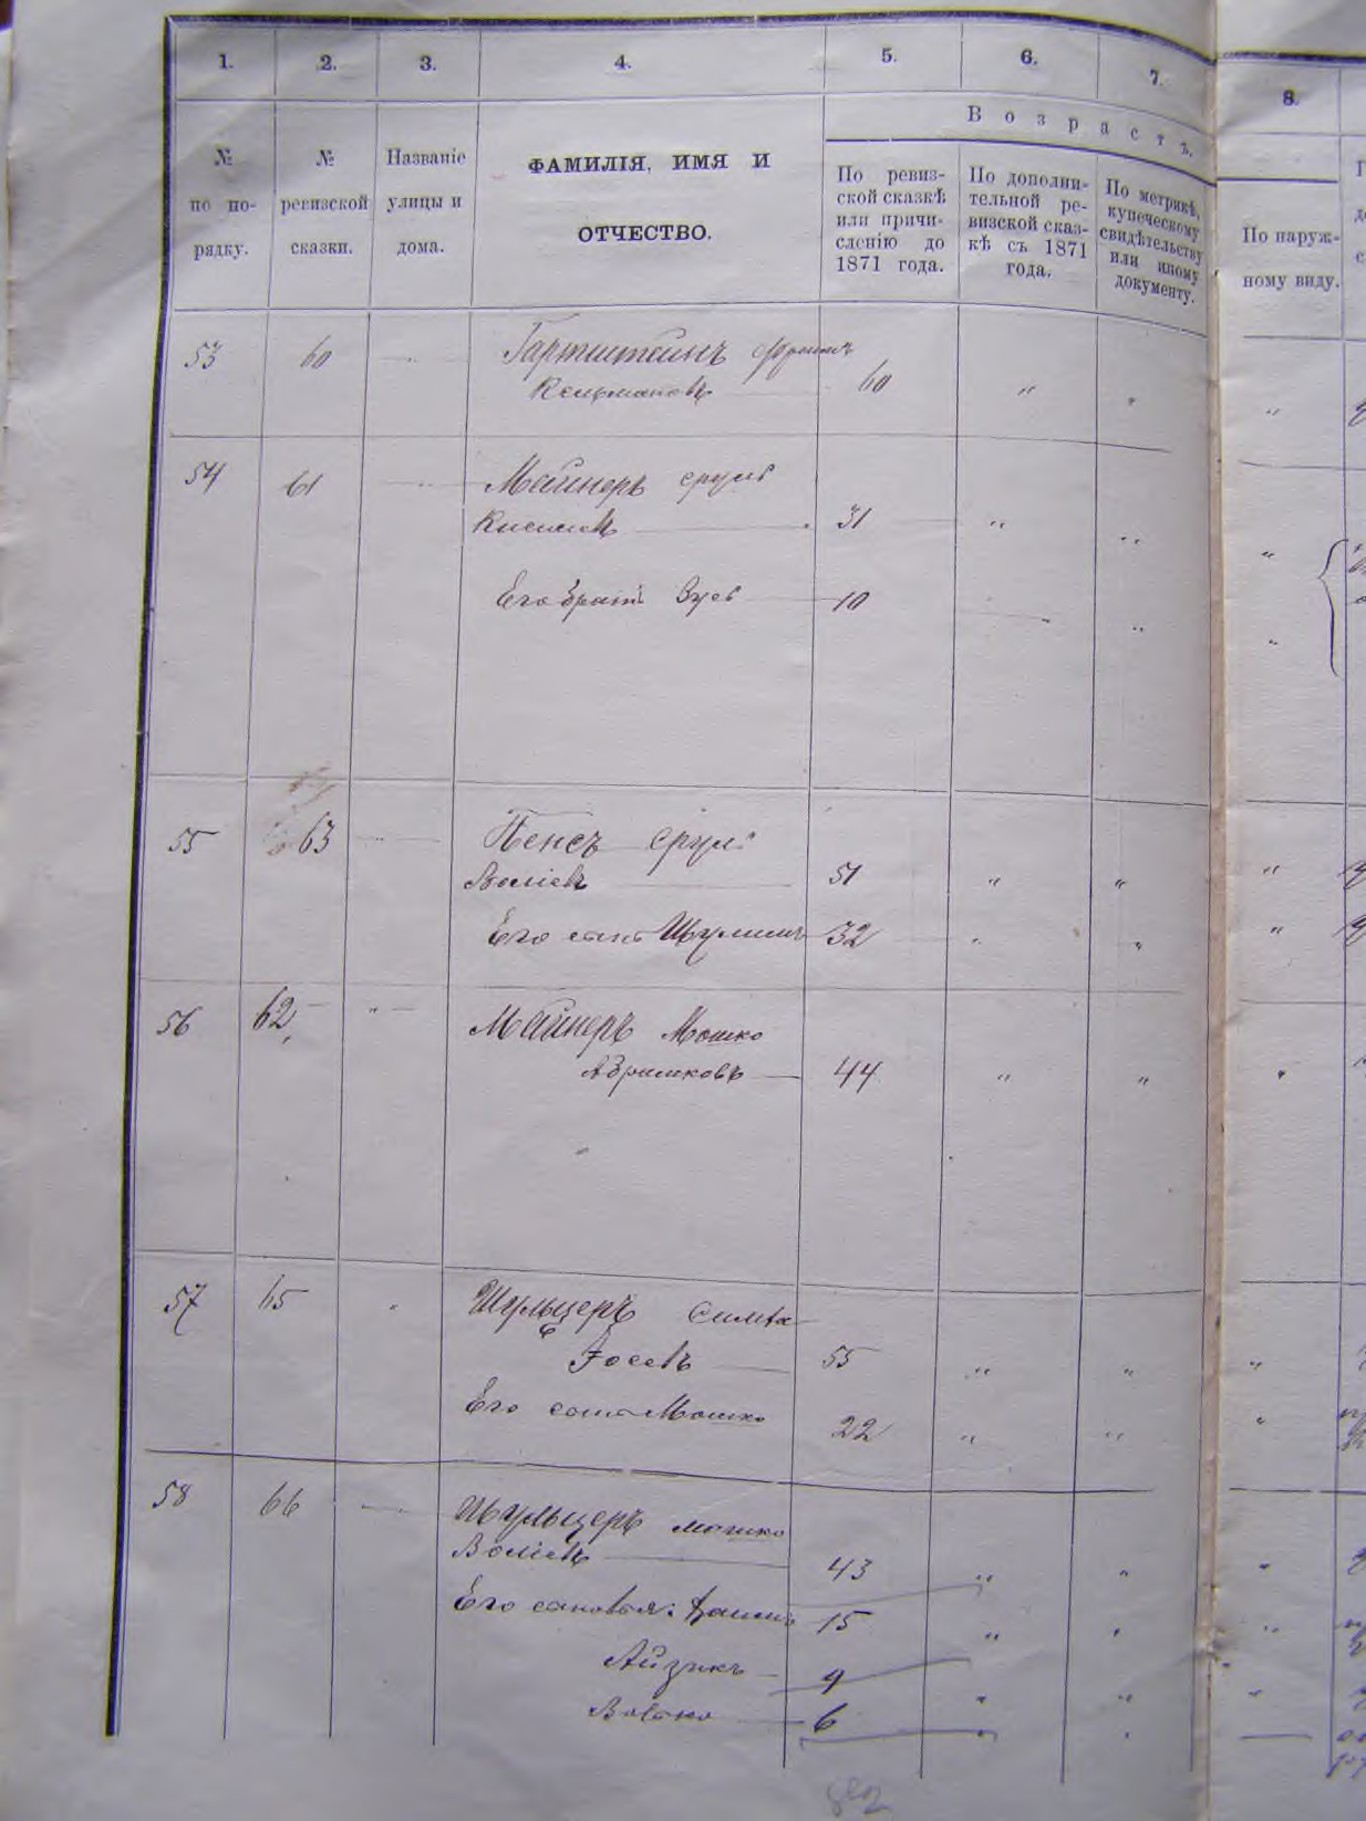 1. 2. 3. 4. 5. 6. 7. 8.
№ по по-рядку.
№ ревизской сказки.
Названіе улицы и дома.
ФАМИЛІЯ, ИМЯ И
ОТЧЕСТВО.
Возрастъ.
По ревиз-
ской сказкѣ
или причи-
сленію до
1871 года.
По дополни-
тельной ре-
визской сказ-
кѣ съ 1871
года.
По метрикѣ,
купеческому
свидѣтельству
или иному
документу.
По наруж-
ному виду.
53 60 Гартштейнъ
60 " " "
54 61 Майнеръ Сруль
31 " " "
Его братъ Зусь 10 " "
55 63 Пенсъ Сруль
51 " " "
Его сынъ 32 " " "
56 62 " Майнеръ Мошко
Абрамковъ 44 " " "
57 65 " Шульцеръ Симха
Іосевъ 55 " " "
Его сынъ Мошко 22 " " "
58 66 Шульцеръ Мошко
43 " " "
Его сыновья: 15 " " "
Айзикъ 9 " "
Волько 6 " "